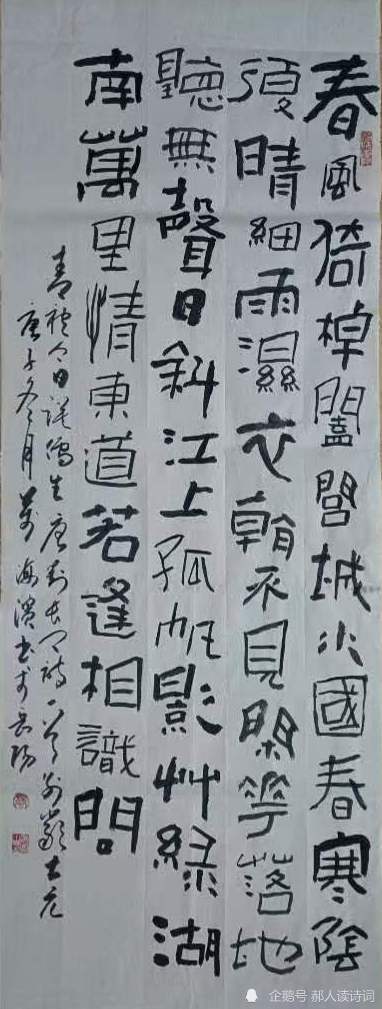 春風倚棹闔閭城水國春寒陰
復晴細雨濕衣看不見閑花落地
聽無聲日斜江上孤帆影艸綠湖
南萬里情東道若逢相識問
青袍今日誤儒生唐劉長卿詩一首別嚴士元
庚子冬月萬海濱書於岳陽
企鹅号 郝人读诗词